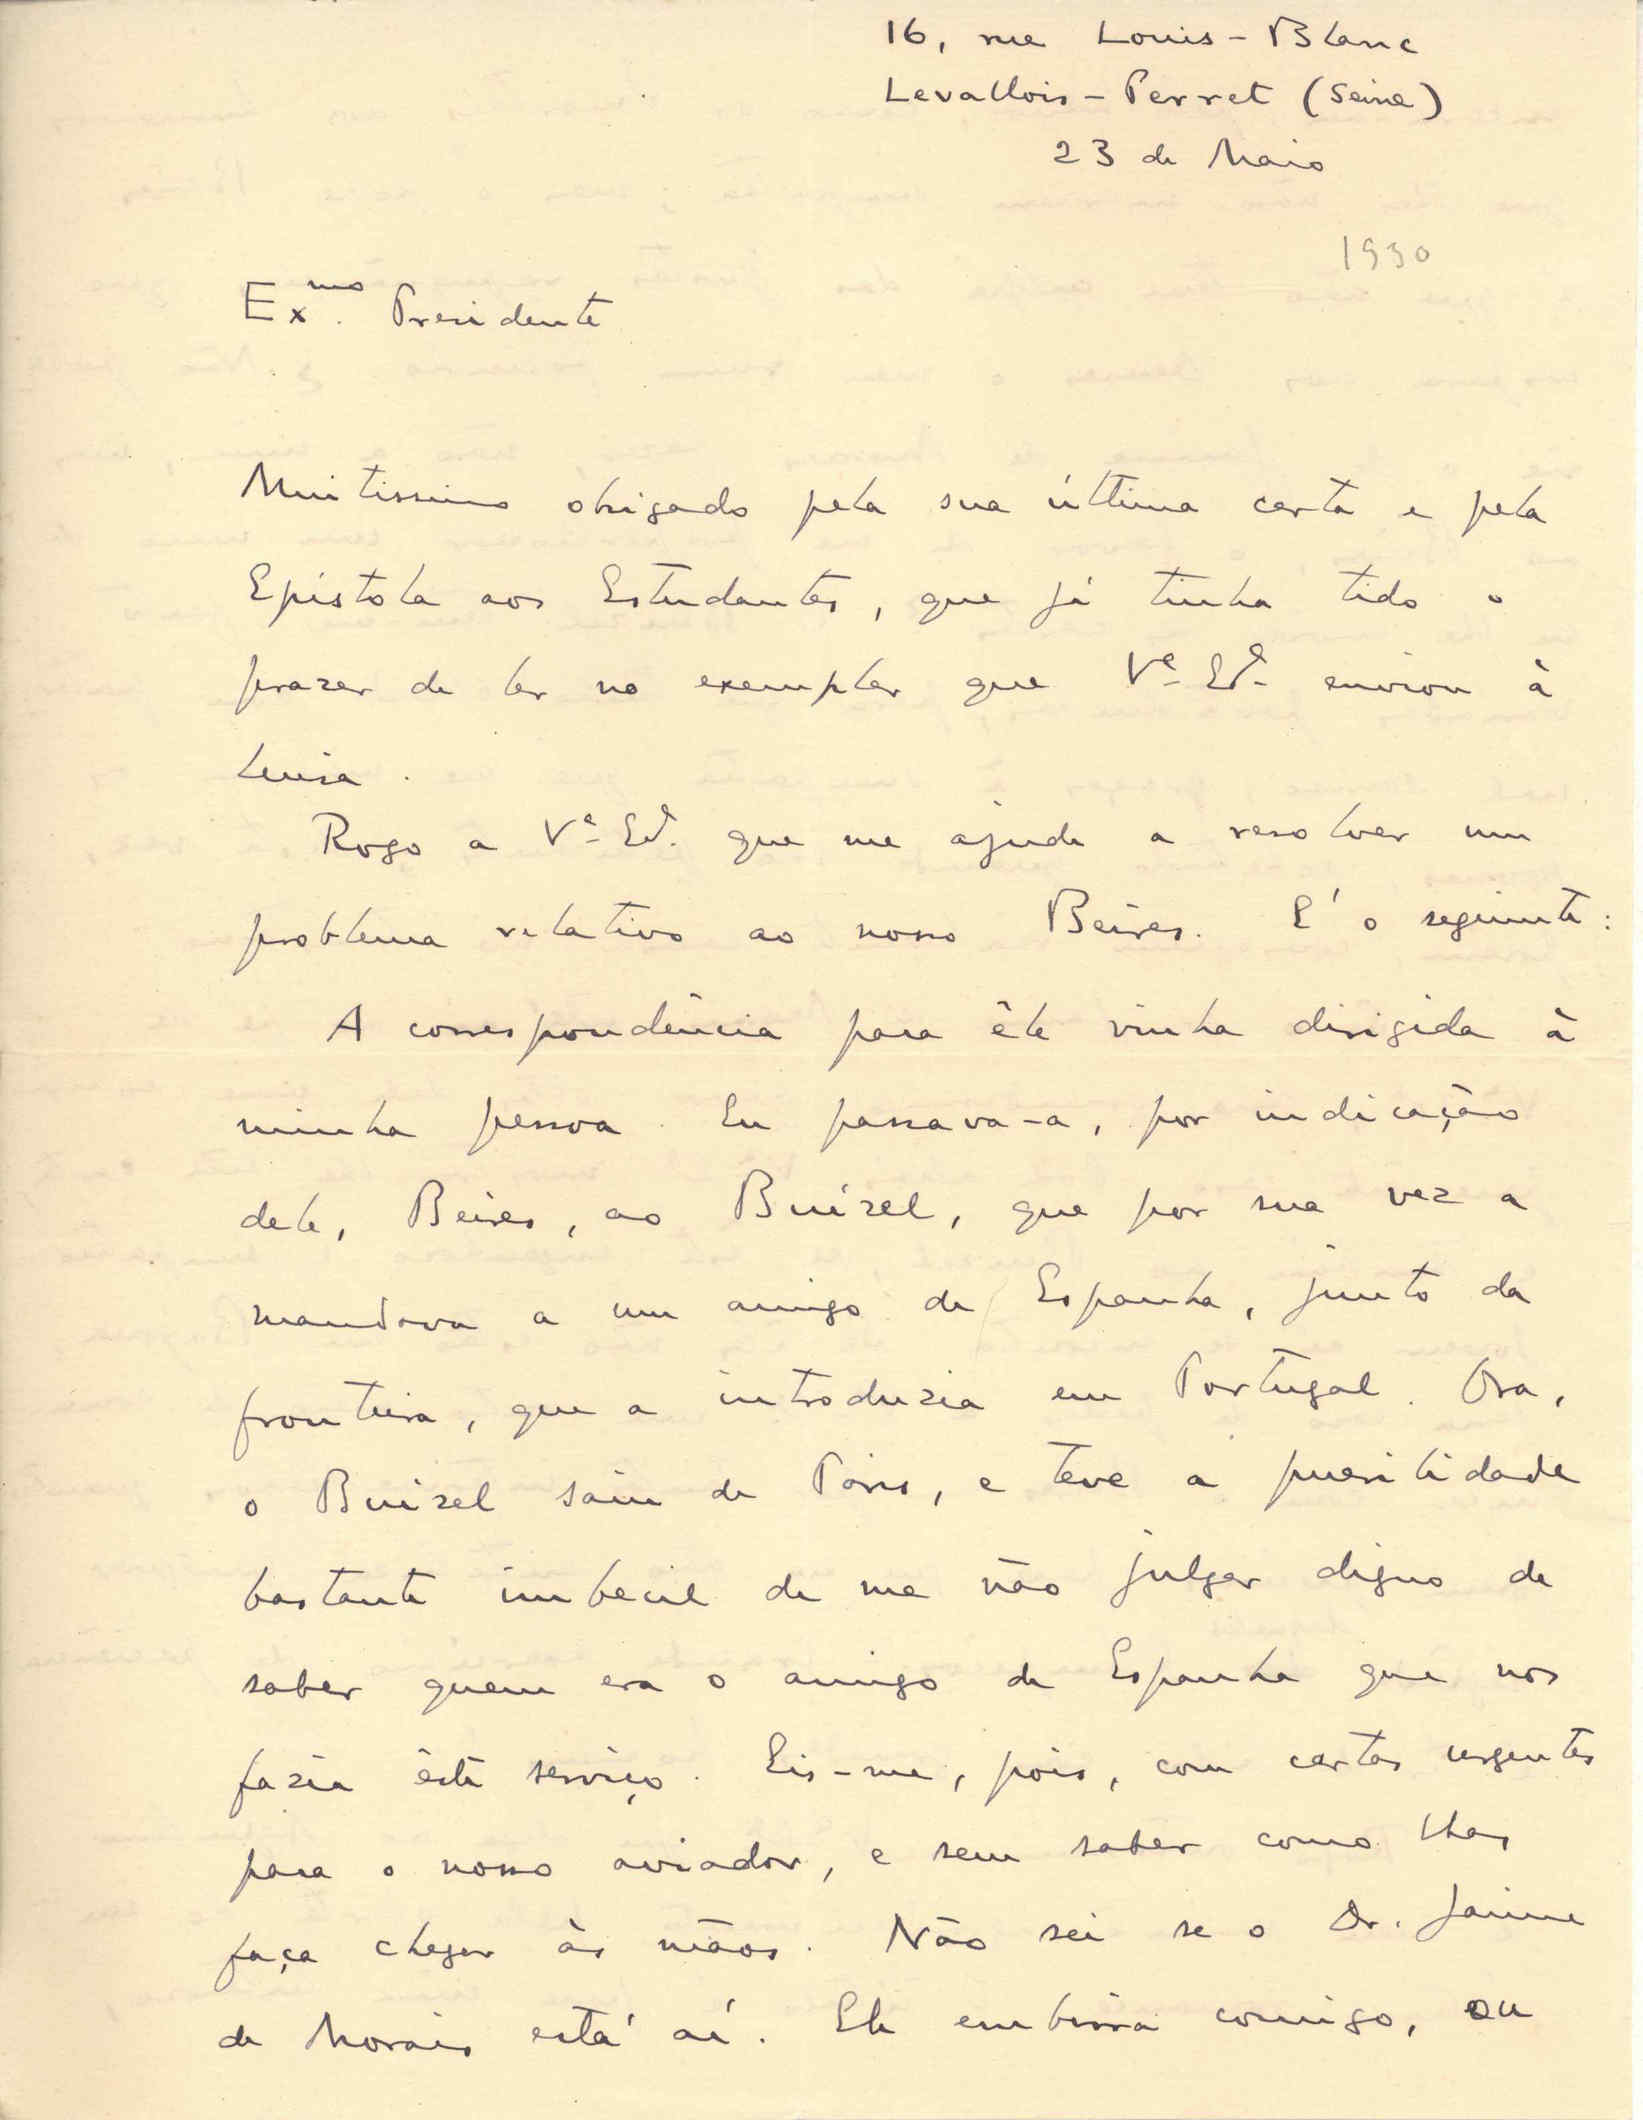 16, rue Louis-Blanc
Levallois-Perret (Seine)
23 de Maio
1930
Exmo. Presidente
Muitissimo obrigado pela sua última carta e pela
Epístola aos Estudantes, que já tinha tido o
prazer de ler no exemplar que Vª Exª enviou à
Luisa.
Rogo a Vª Exª. que me ajude a resolver um
problema relativo ao nosso Beires. E' o seguinte:
A correspondência para êle vinha dirigida à
minha pessoa. Eu passava-a, por indicação
dele, Beires, ao Buisel, que por sua vez a
mandava a um amigo de Espanha, junto da
fronteira, que a introduzia em Portugal. Ora,
o Buisel saiu de Paris, e teve a puerilidade
bastante imbecil de me não julgar digno de
saber quem era o amigo de Espanha que nos
fazia êste serviço. Eis-me, pois, com cartas urgentes
para o nosso aviador, e sem saber como lhas
faça chegar às mãos. Não sei se o Dr. Jaime
de Morais está aí. Ele embirra comigo, ou